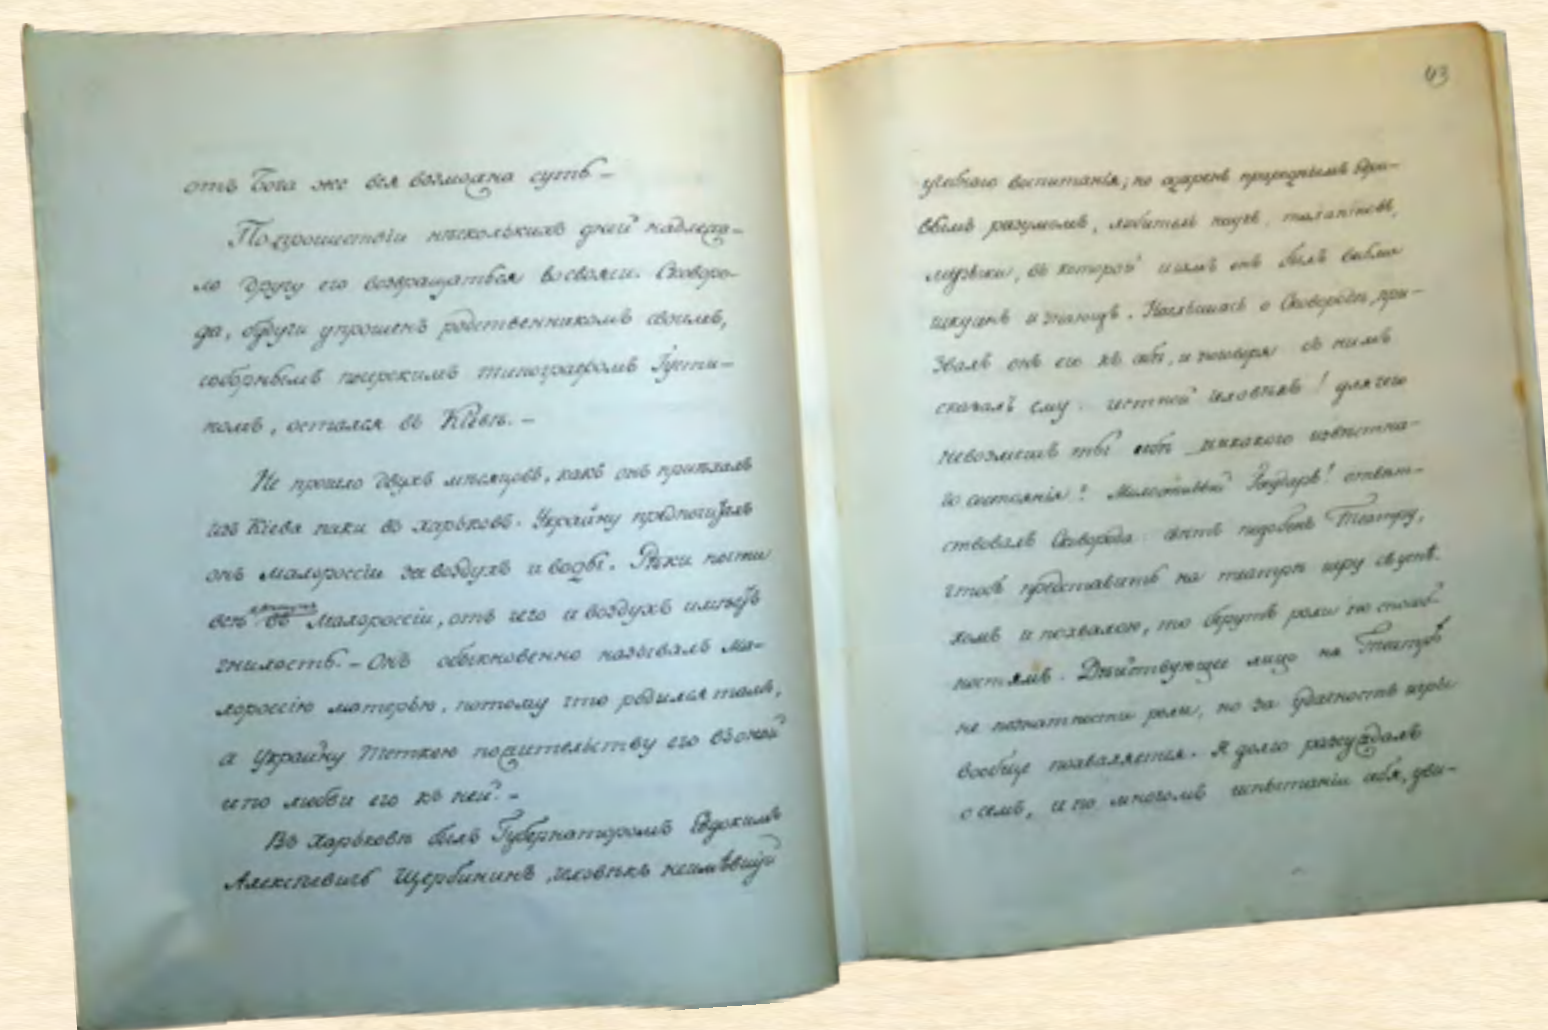 отъ Бога же вся возможна суть –
По прошествіи нѣсколькихъ дней надлежа-
ло другу его возвращаться во свояси. Сковоро-
да, будучи упрошенъ родственникомъ своимъ,
соборнымъ печерскимъ типографомъ Густи-
номъ, остался въ Кіевѣ. –
Не прошло двухъ мѣсяцовъ, какъ онъ пріѣхалъ
изъ Кіева паки въ Харьковъ. Украйну предпочиталъ
онъ Малороссіи за воздухъ и воды. Рѣки почти
всѣ въ Малороссіи, отъ чего и воздухъ имѣетъ
гнилость. – Онъ обыкновенно называлъ Ма-
лороссію матерью, потому что родился тамъ,
а Украйну теткою по жительству его въ оной
и по любви его къ ней. –
Въ Харьковѣ былъ Губернаторомъ Евдокимъ
Алексѣевичь Щербининъ, человѣкъ неимѣвшій
43
учебнаго воспитанія; но одаренъ природнымъ здра-
вымъ разумомъ, любитель наукъ, талантовъ,
музыки, въ которой и самъ онъ былъ весьма
искусенъ и знающъ. Наслышась о Сковородѣ, при-
звалъ онъ его къ себѣ, и поговоря съ нимъ
сказалъ ему: честной человѣкъ! для чего
невозмешъ ты себѣ никакого извѣстна-
го состоянія? Милостивый Государь! отвѣт-
ствовалъ Сковорода: свѣтъ подобенъ Театру,
чтобъ представить на театрѣ игру съ успѣ-
хомъ и похвалою, то берутъ роли по способ-
ностямъ. Дѣйствующее лицо на Театрѣ
не по знатности роли, но за удачность игры
вообще похваляется. Я долго разсуждалъ
о семъ, и по многомъ испытаніи себя, уви-